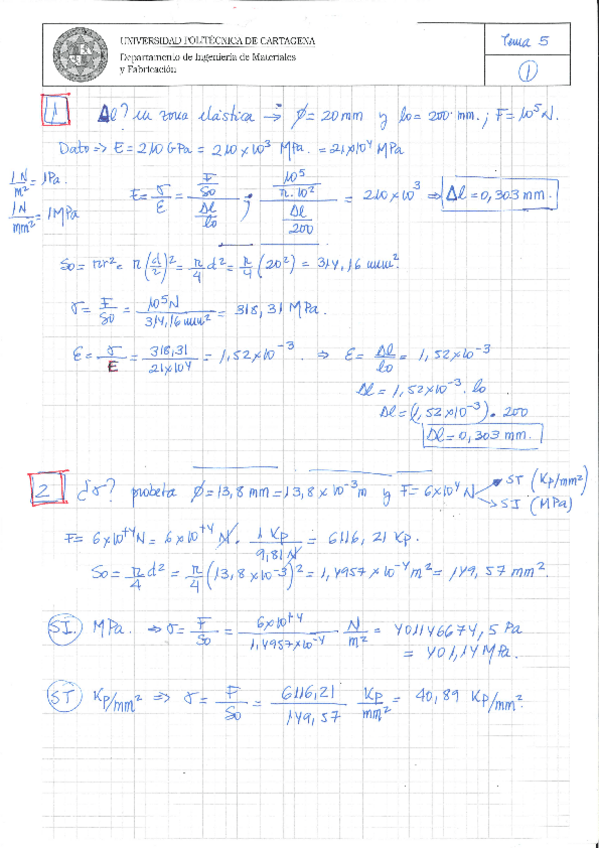 UNIVERSIDAD POLITÉCNICA DE CARTAGENA
Departamento de Ingeniería de Materiales
y Fabricación
Tema 5
1
1 Δl? en zona elástica → ϕ = 20 mm y lo = 200 mm.; F = 10⁵ N.
Dato => E = 210 GPa = 210 x 10³ MPa. = 21x10⁴ MPa
1N/m² = 1Pa.
1N/mm² = 1MPa
E = σ/ε = (F/So)/(Δl/lo) ; (10⁵/π·10²)/(Δl/200) = 210 x 10³ => Δl = 0,303 mm.
So = πr² = π(d/2)² = π/4 d² = π/4 (20²) = 314,16 mm².
σ = F/So = 10⁵ N/314,16 mm² = 318,31 MPa.
ε = σ/E = 318,31/21x10⁴ = 1,52x10⁻³ => ε = Δl/lo = 1,52x10⁻³
Δl = 1,52x10⁻³ · lo
Δl = (1,52x10⁻³) · 200
Δl = 0,303 mm.
2 ¿σ? probeta ϕ = 13,8 mm = 13,8 x 10⁻³ m y F = 6x10⁴ N
ST (Kp/mm²)
SI (MPa)
F = 6x10⁺⁴ N = 6x10⁺⁴ N · 1 Kp/9,81 N = 6116,21 Kp.
So = π/4 d² = π/4 (13,8 x10⁻³)² = 1,4957 x 10⁻⁴ m² = 149,57 mm².
SI. MPa. => σ = F/So = 6x10⁺⁴/1,4957x10⁻⁴ N/m² = 401146674,5 Pa
= 401,14 MPa.
ST Kp/mm² => σ = F/So = 6116,21/149,57 Kp/mm² = 40,89 Kp/mm².